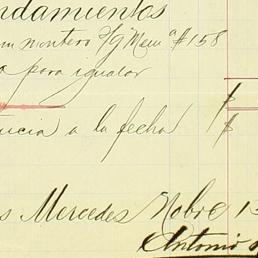 ndamientos
montero s/g Mem ª #158
para igualar
$
ucia a la fecha $
s Mercedes Nobre 13
Antonio